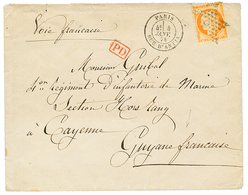 Voie française
PARIS
JANV.
PD
Monsieur Gribal
4e Régiment d'infanterie de Marine
Section Hors Rang
à Cayenne
Guyane française